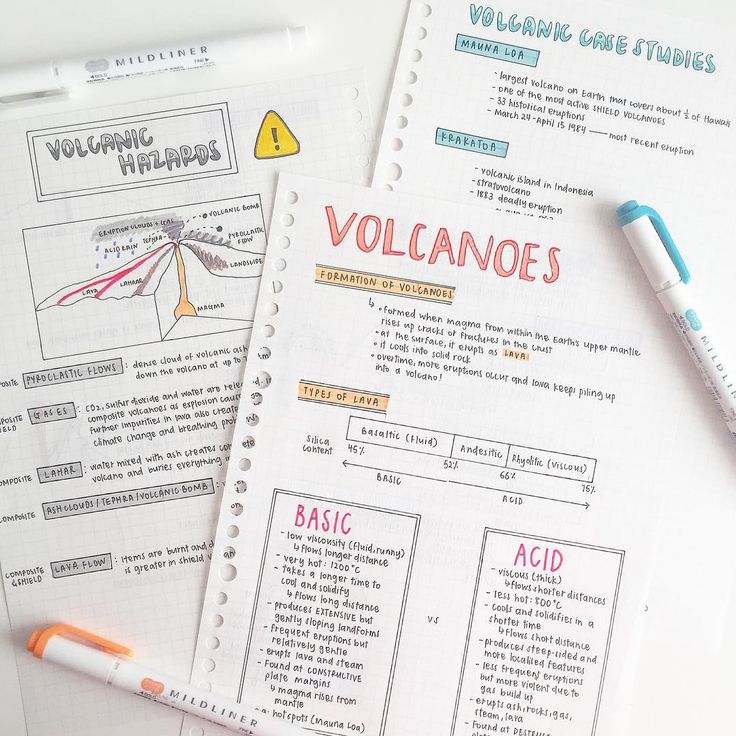 MILDLINER
VOLCANIC
HAZARDS
ERUPTION CLOUDS + GAS
VOLCANIC BOMB
ACID RAIN
TEPHRA
PYROCLASTIC
FLOW
LANDSLIDE
LAVA
LAHAR
MAGMA
PYROCLASTIC FLOWS : dense cloud of volcanic ash
down the volcano at up to
GASES : CO2, sulfur dioxide and water are
composite volcanoes as explosion
further impurities in lava also
climate change and breathing
COMPOSITE LAHAR : water mixed with ash creates
volcano and buries everything
COMPOSITE ASH CLOUDS / TEPHRA / VOLCANIC BOMB :
COMPOSITE
& SHIELD
LAVA FLOW : items are burnt and
is greater in shield
VOLCANIC CASE STUDIES
MAUNA LOA
- largest volcano on Earth that covers about ½ of Hawaii
- one of the most active SHIELD VOLCANOES
- 33 historical eruptions
- March 24 - April 15 1984 — most recent eruption
KRAKATOA
- volcanic island in Indonesia
- stratovolcano
- 1883 deadly eruption
VOLCANOES
FORMATION OF VOLCANOES
↳ • formed when magma from within the Earth's upper mantle
rises up cracks or fractures in the crust
• at the surface, it erupts as LAVA
• it cools into solid rock
• overtime, more eruptions occur and lava keeps piling up
into a volcano!
TYPES OF LAVA
Basaltic (Fluid) Andesitic Rhyolitic (viscous)
Silica
content
45% 52% 66% 75%
BASIC ACID
BASIC
- low viscousity (fluid, runny)
↳ flows longer distance
- very hot: 1200°C
- takes a longer time to
cool and solidify
↳ flows long distance
- produces EXTENSIVE but
gently sloping landforms
- frequent eruptions but
relatively gentle
- erupts lava and steam
- Found at CONSTRUCTIVE
plate margins
↳ magma rises from
mantle
hotspots (Mauna Loa)
VS
ACID
- viscous (thick)
↳ flows shorter distances
- less hot: 800°C
- cools and solidifies in a
shorter time
↳ flows short distance
- produces steep-sided and
more localised features
- less frequent eruptions
but more violent due to
gas build up
- erupts ash, rocks, gas,
steam, lava
- found at
MILDLINER
MILDLINER